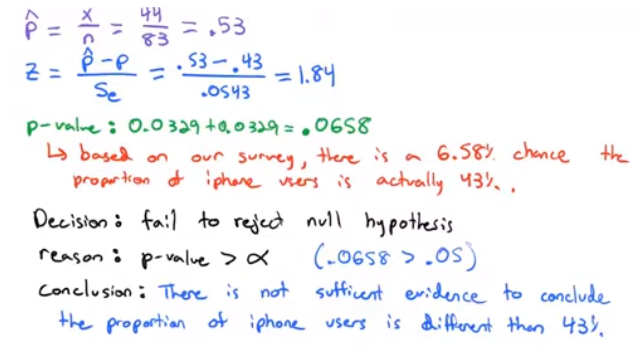 p̂ = x/n = 44/83 = .53
z = (p̂ - p)/Se = (.53 - .43)/.0543 = 1.84
p-value : 0.0329 + 0.0329 = .0658
↳ based on our survey, there is a 6.58% chance the
proportion of iphone users is actually 43%.
Decision : fail to reject null hypothesis
reason : p-value > α (.0658 > .05)
Conclusion : There is not sufficent evidence to conclude
the proportion of iphone users is different than 43%.